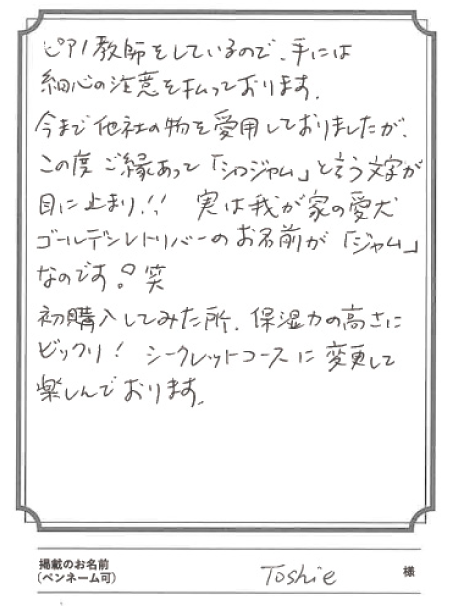 ピアノ教師をしているので、手には
細心の注意を払っております。
今まで他社の物を愛用しておりましたが、
この度ご縁あって「シロジャム」と言う文字が
目に止まり!! 実は我が家の愛犬
ゴールデンレトリバーのお名前が「ジャム」
なのです。笑
初購入してみた所、保湿力の高さに
ビックリ! シークレットコースに変更して
楽しんでおります。
掲載のお名前
(ペンネーム可) Toshie 様